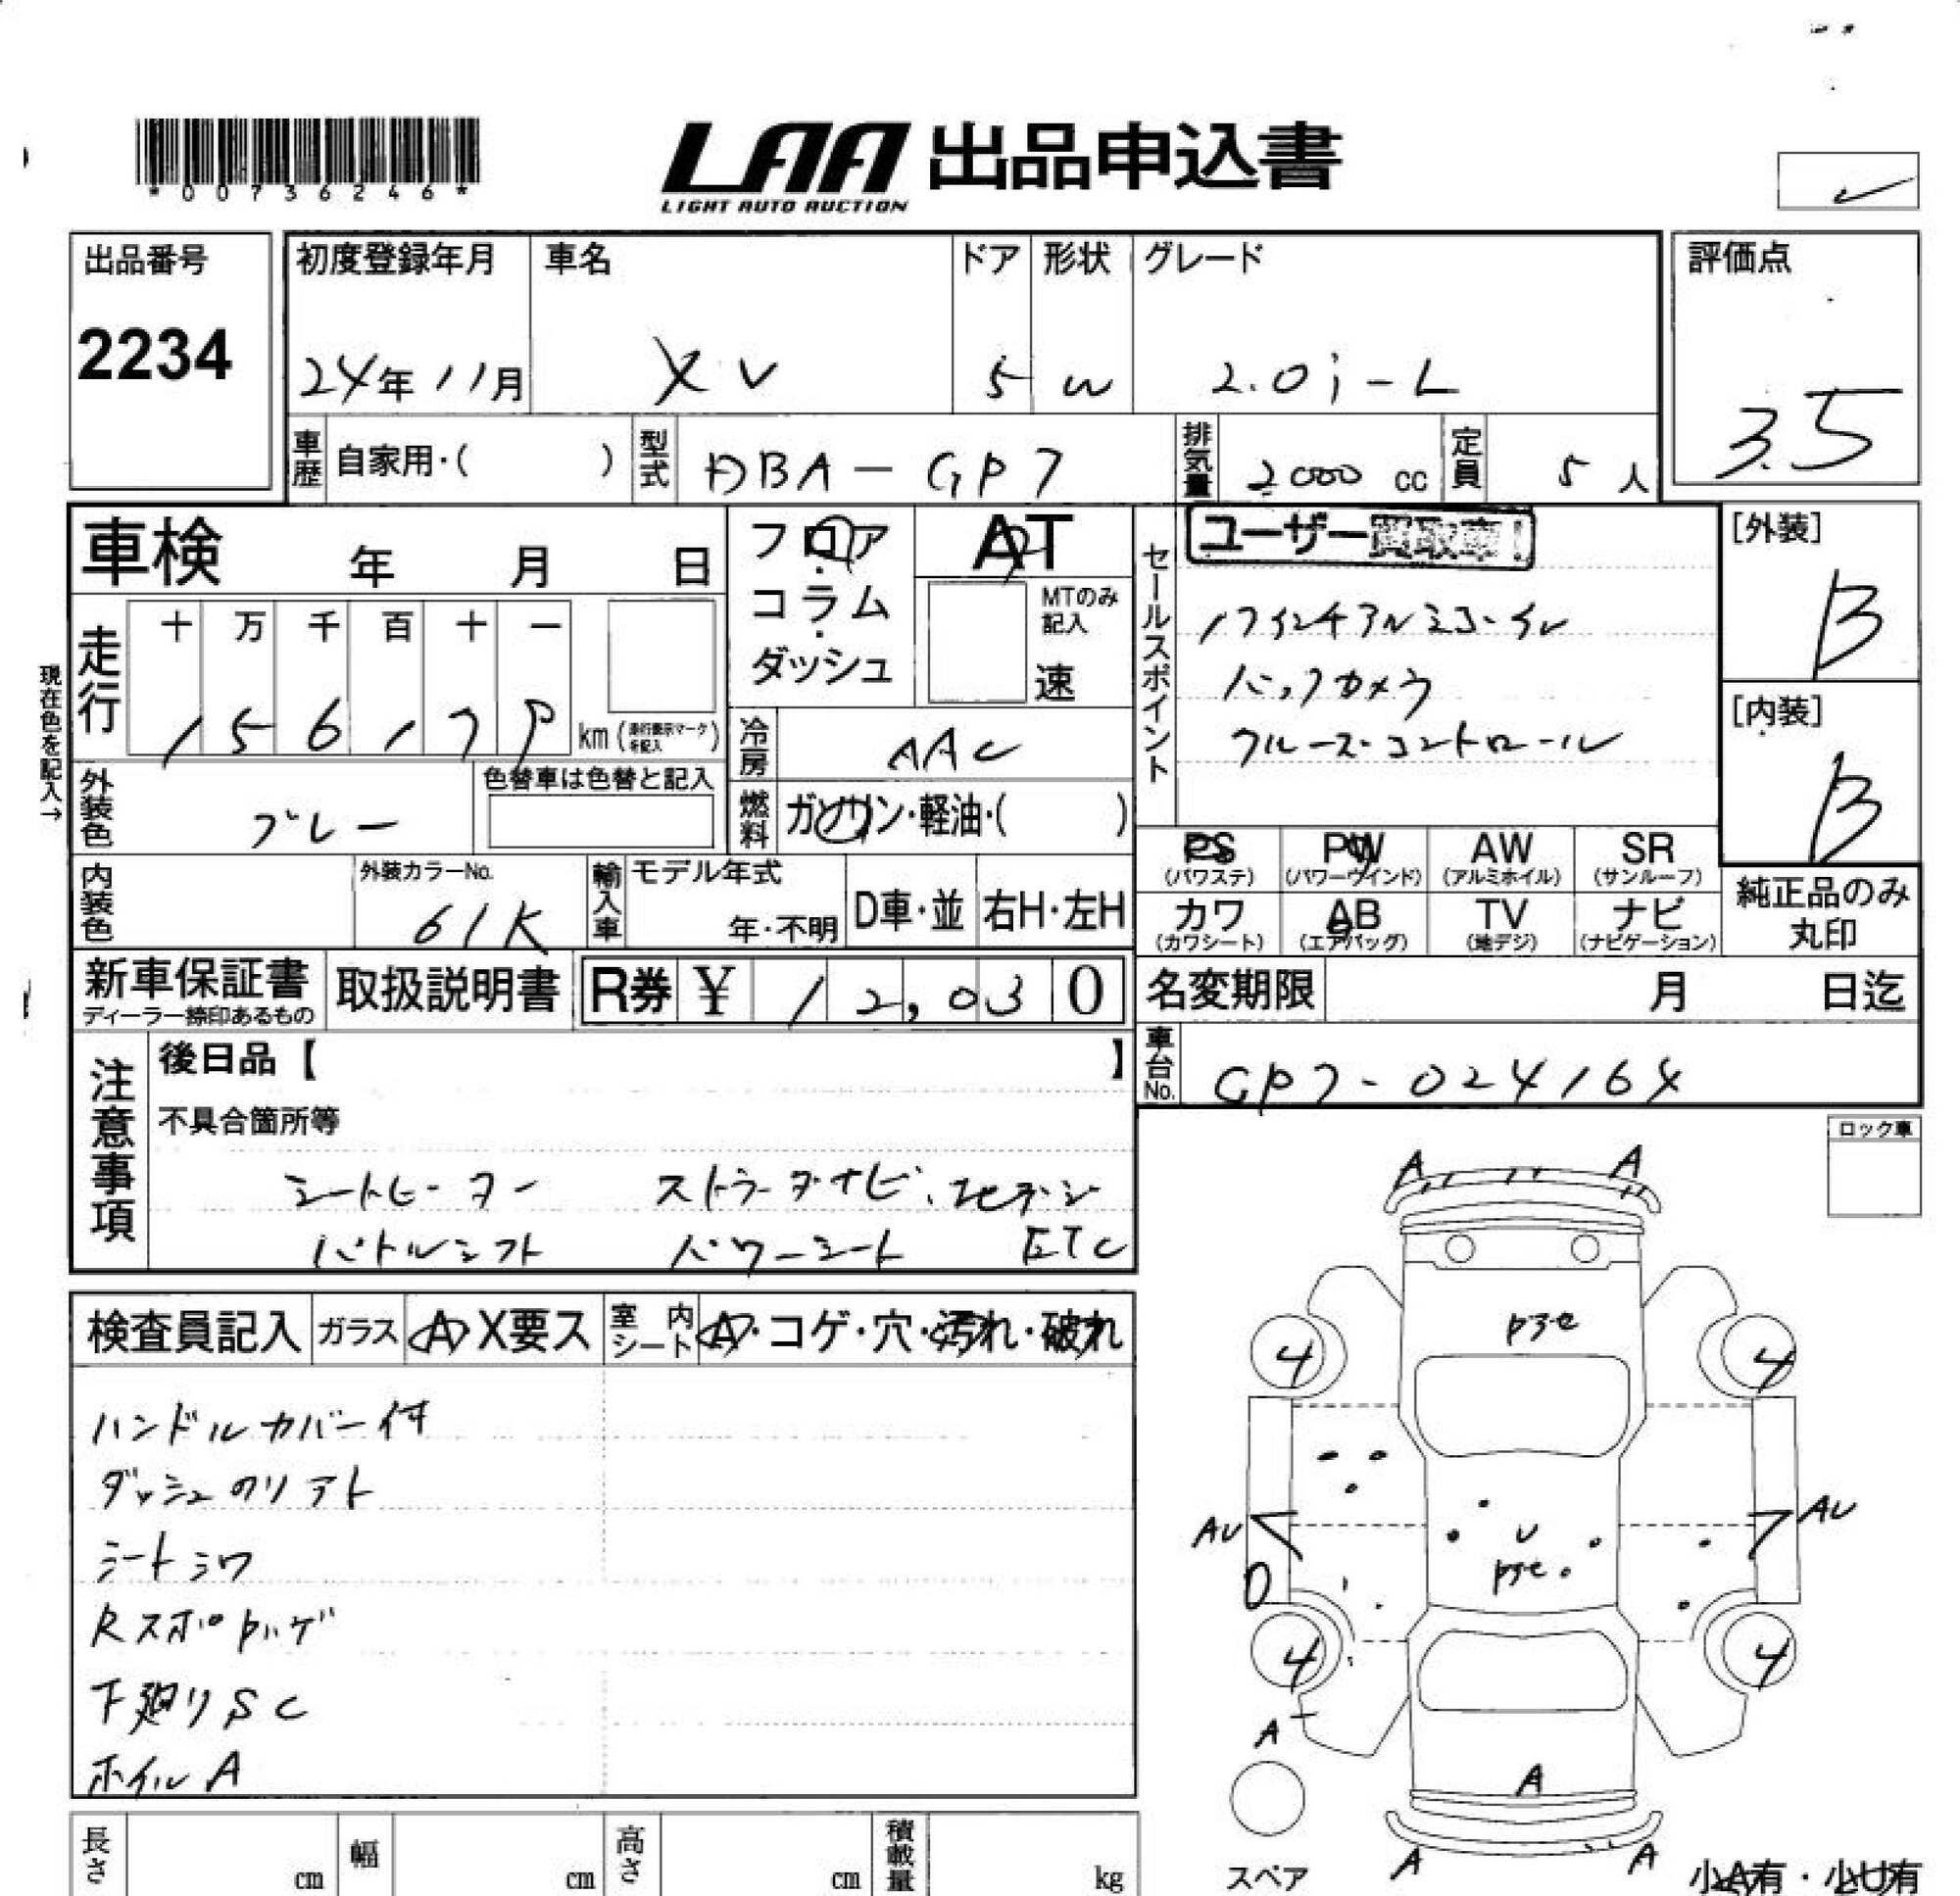 *00736246*
LAA 出品申込書
LIGHT AUTO AUCTION
出品番号
2234
初度登録年月
24年11月
車名
XV
ドア
5
形状
W
グレード
2.0i-L
評価点
3.5
車歴 自家用・( )
型式 DBA-GP7
排気量 2000 cc
定員 5 人
車検 年 月 日
フロア・コラム・ダッシュ
AT
MTのみ記入
速
セールスポイント
ユーザー買取車!
17インチアルミホイル
バックカメラ
クルーズコントロール
[外装]
B
[内装]
B
現在色を記入→
走行
十 万 千 百 十 一
1 5 6 1 7 9 km (走行表示マークを記入)
冷房 AAC
外装色 ブルー
色替車は色替と記入
燃料 ガソリン・軽油・( )
PS (パワステ)
PW (パワーウインド)
AW (アルミホイル)
SR (サンルーフ)
カワ (カワシート)
AB (エアバッグ)
TV (地デジ)
ナビ (ナビゲーション)
純正品のみ丸印
内装色
外装カラーNo.
61K
輸入車
モデル年式
年・不明
D車・並
右H・左H
新車保証書
ディーラー捺印あるもの
取扱説明書
R券 ¥ 12,030
名変期限 月 日迄
車台No. GP7-024164
注意事項
後日品【 】
不具合箇所等
シートヒーター ストラーダナビ、フルセグ
パドルシフト パワーシート ETC
ロック車
検査員記入
ガラス A・X要ス
室内シート A・コゲ・穴・汚れ・破れ
ハンドルカバー付
ダッシュのリアト
シートシワ
Rスポ
下廻りSC
ホイルA
A A
4 4
AU U AU
4 4
A
A
A A
スペア
小A有・小U有
長さ cm
幅 cm
高さ cm
積載量 kg